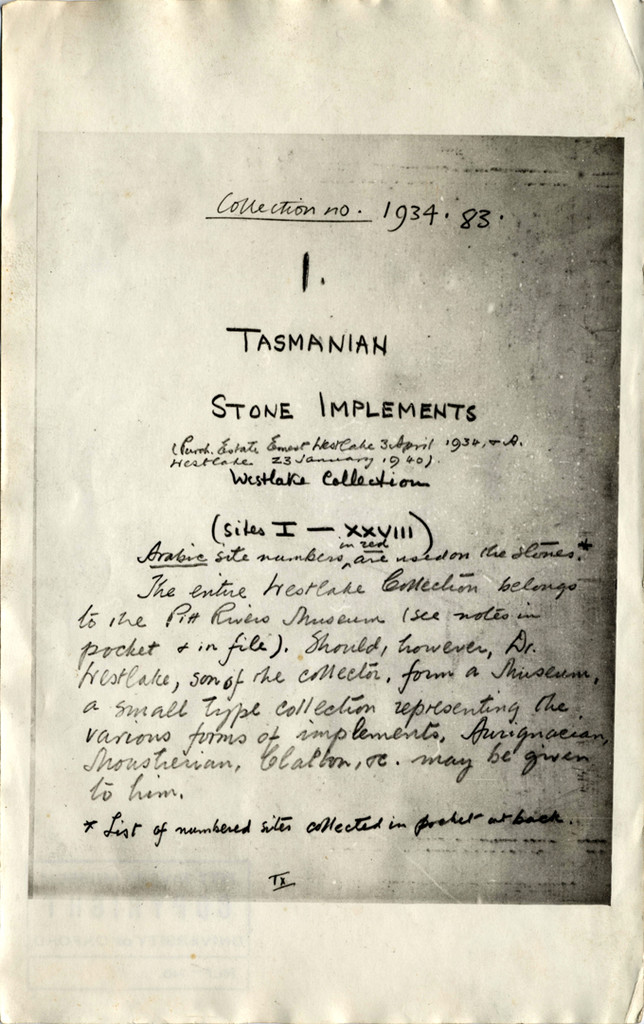 Collection no. 1934.83.
1.
TASMANIAN
STONE IMPLEMENTS
(Purch. Estate Ernest Westlake 3 April 1934, & A.
Westlake 23 January 1940).
Westlake Collection
(Sites I — XXVIII)
in red
Arabic site numbers ^ are used on the stones.*
The entire Westlake Collection belongs
to the Pitt Rivers Museum (see notes in
pocket & in file). Should, however, Dr.
Westlake, son of the collector, form a Museum,
a small type collection representing the
various forms of implements, Aurignacian,
Mousterian, Clacton, &c. may be given
to him.
* List of numbered sites collected in pocket at back.
UNIVERSITY OF OXFORD